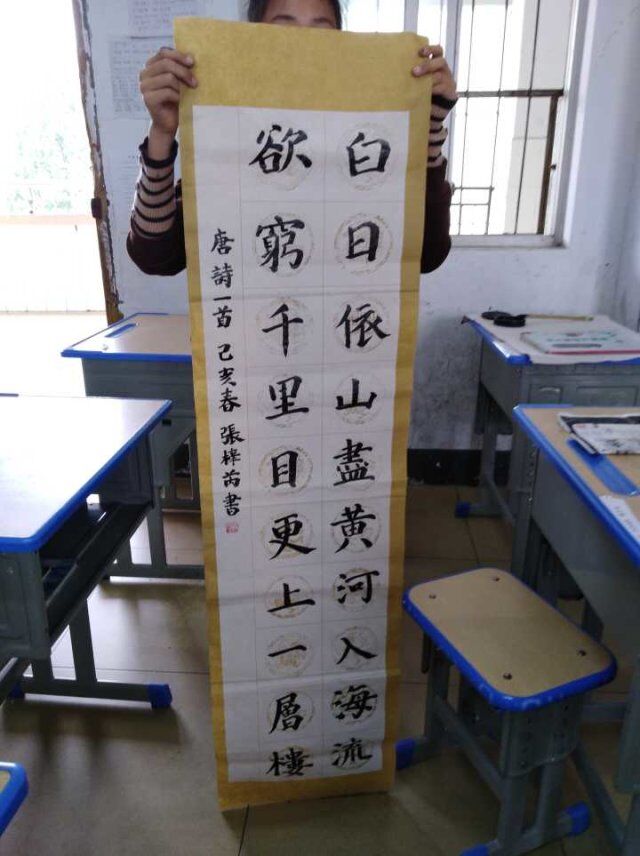 白日依山盡黄河入海流
欲窮千里目更上一層樓
唐詩一首 己亥春 張梓芮書